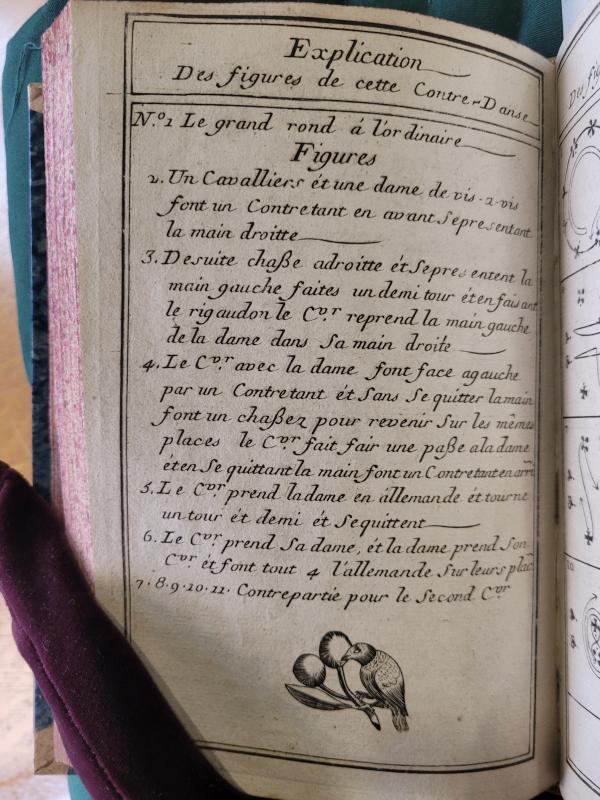 Explication
Des figures de cette Contre-Danse
N.º1 Le grand rond á l'ordinaire
Figures
2. Un Cavalliers ét une dame de vis-a-vis
font un Contretant en avant Sepresentant
la main droitte
3. Desuite chaße adroitte ét Sepresentent la
main gauche faites undemi tour éten faisant
le rigaudon le C.vr reprend la main gauche
de la dame dans Sa main droite
4. Le C.vr avec la dame font face agauche
par un Contretant ét Sans Se quitter lamain
font un chaßez pour revenir Sur les mêmes
places le C.vr fait fair une paße ala dame
éten Se quittant la main font un Contretant en arr
5. Le C.vr prend la dame en állemande ét tourne
un tour ét demi ét Sequittent
6. Le C.vr prend Sa dame, ét la dame prend Son
C.vr ét font tout 4 l'allemande Sur leurs plac
7.8.9.10.11. Contrepartie pour le Second C.vr
Des fig